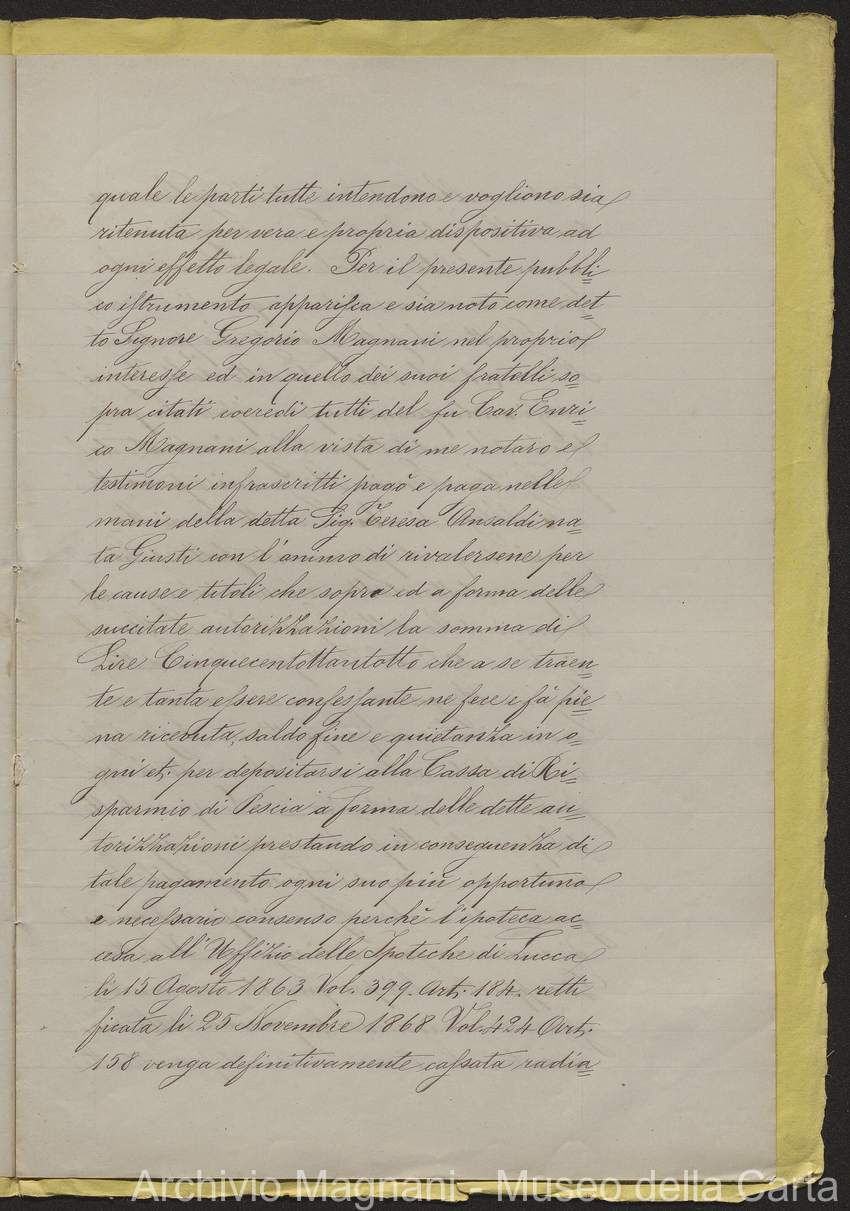 quale le parti tutte intendono e vogliono sia
ritenuta per vera e propria dispositiva ad
ogni effetto legale. Per il presente pubbli=
co istrumento apparisca e sia noto come det=
to Signore Gregorio Magnani nel proprio
interesse ed in quello dei suoi fratelli so=
pra citati coeredi tutti del fu Cav. Enri=
co Magnani alla vista di me notaro e
testimoni infrascritti pagò e paga nelle
mani della detta Sig. Teresa Ansaldi na=
ta Giusti con l'animo di rivalersene per
le cause e titoli che sopra ed a forma delle
succitate autorizzazioni la somma di
Lire Cinquecentottantotto che a se traen=
te e tanta essere confessante ne fece e fà pie=
na ricevuta, saldo fine e quietanza in o=
gni et. per depositarsi alla Cassa di Ri=
sparmio di Pescia a forma delle dette au=
torizzazioni prestando in conseguenza di
tale pagamento ogni suo più opportuno
e necessario consenso perchè l'ipoteca ac=
cesa all'Uffizio delle Ipoteche di Lucca
li 15 Agosto 1863 Vol. 399. Art. 184. retti
ficata li 25 Novembre 1868 Vol. 424 Art.
158 venga definitivamente cassata radia=
Archivio Magnani - Museo della Carta